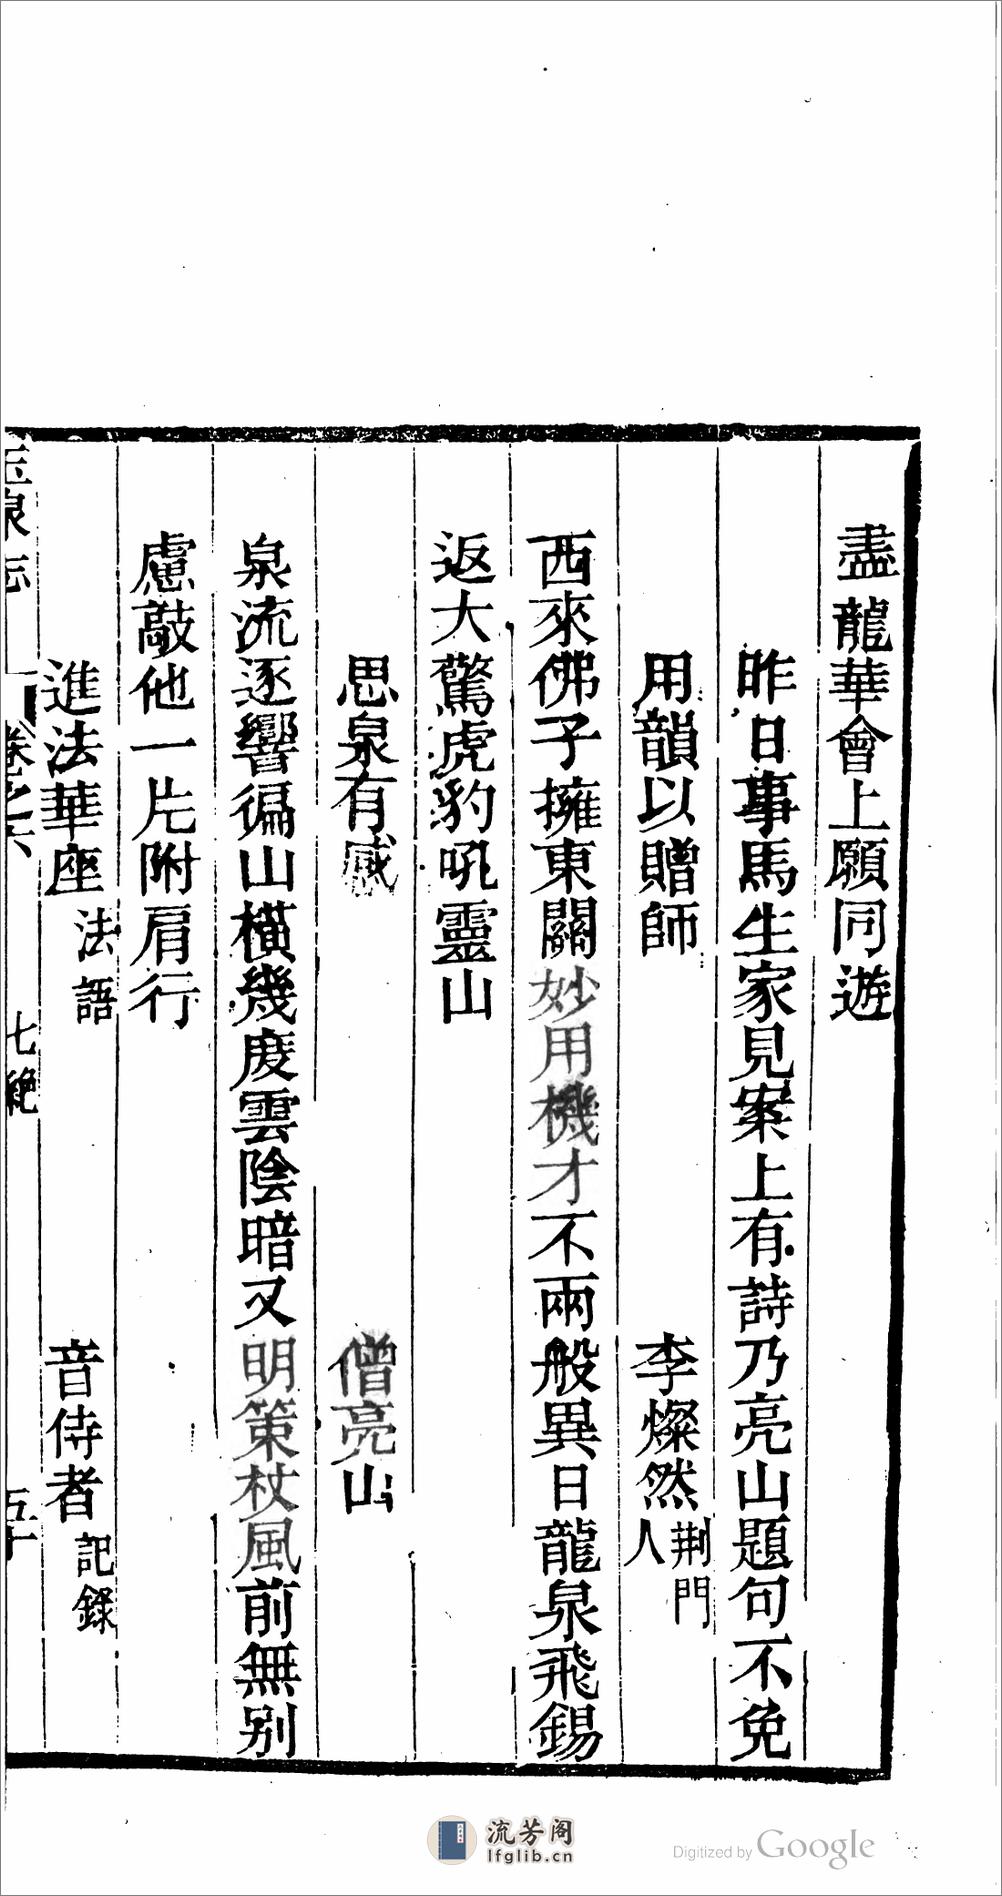 盡龍華會上願同遊
昨日事馬生家見案上有詩乃亮山題句不免
用韻以贈師　李燦然 荆門人
西來佛子擁東關妙用機才不兩般異日龍泉飛錫
返大驚虎豹吼靈山
思泉有感　僧亮山
泉流逐響徧山橫幾度雲陰暗又明策杖風前無别
慮敲他一片附肩行
進法華座 法語　音侍者 記錄
玉泉志　卷之六　七絶　五十
流芳阁
lfglib.cn
Digitized by Google